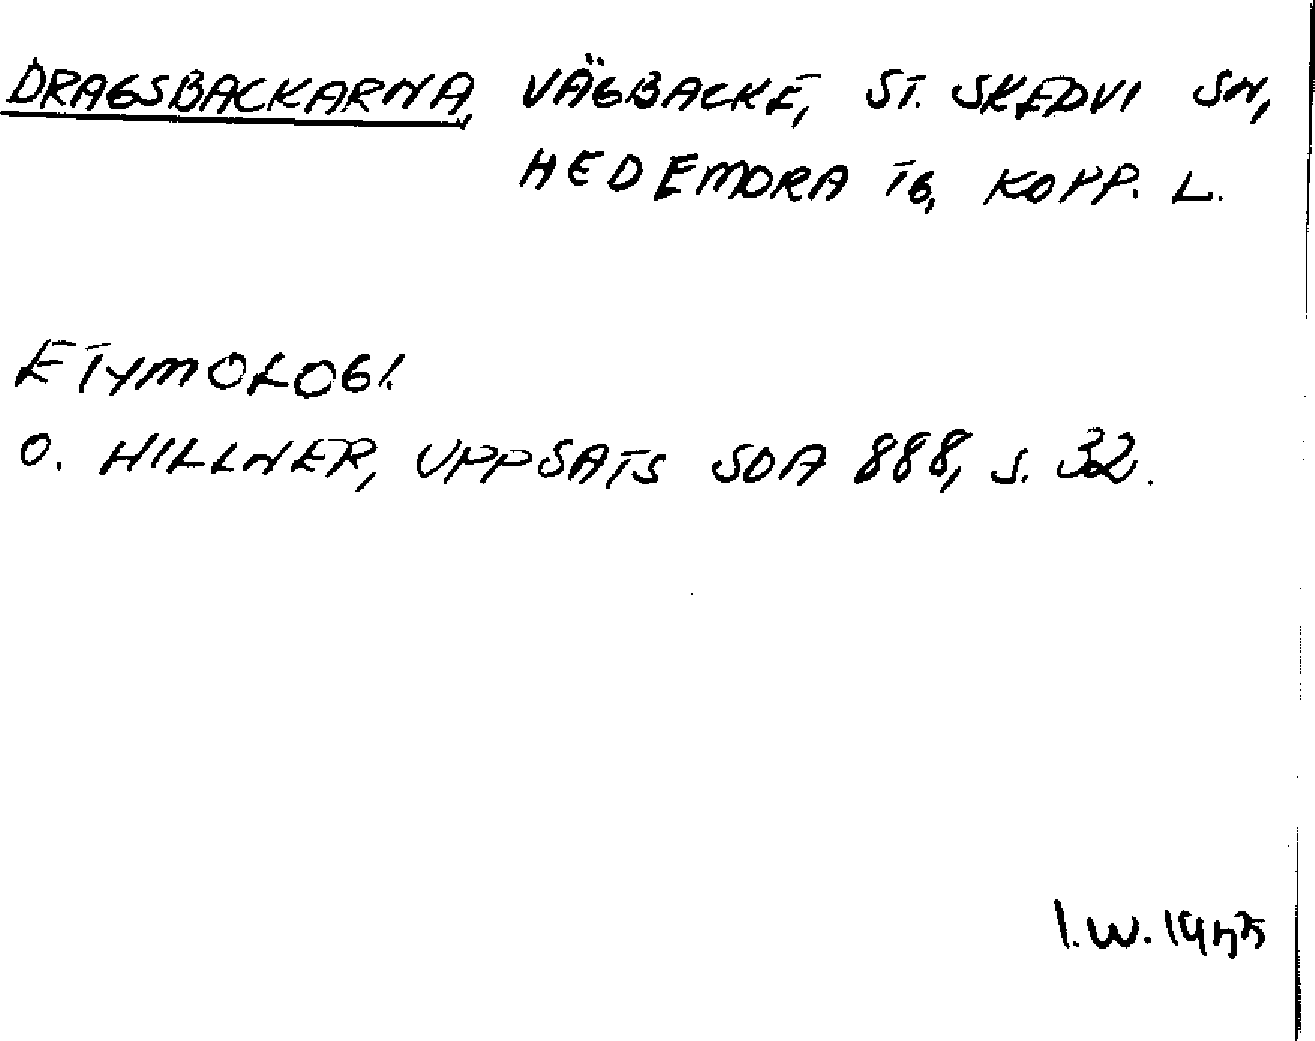 DRAGSBACKARNA, VÄGBACKE, ST. SKEDVI SN,
HEDEMORA TG, KOPP. L.
ETYMOLOGI.
O. HILLNER, UPPSATS SOA 888, S. 32.
I.W. 1975